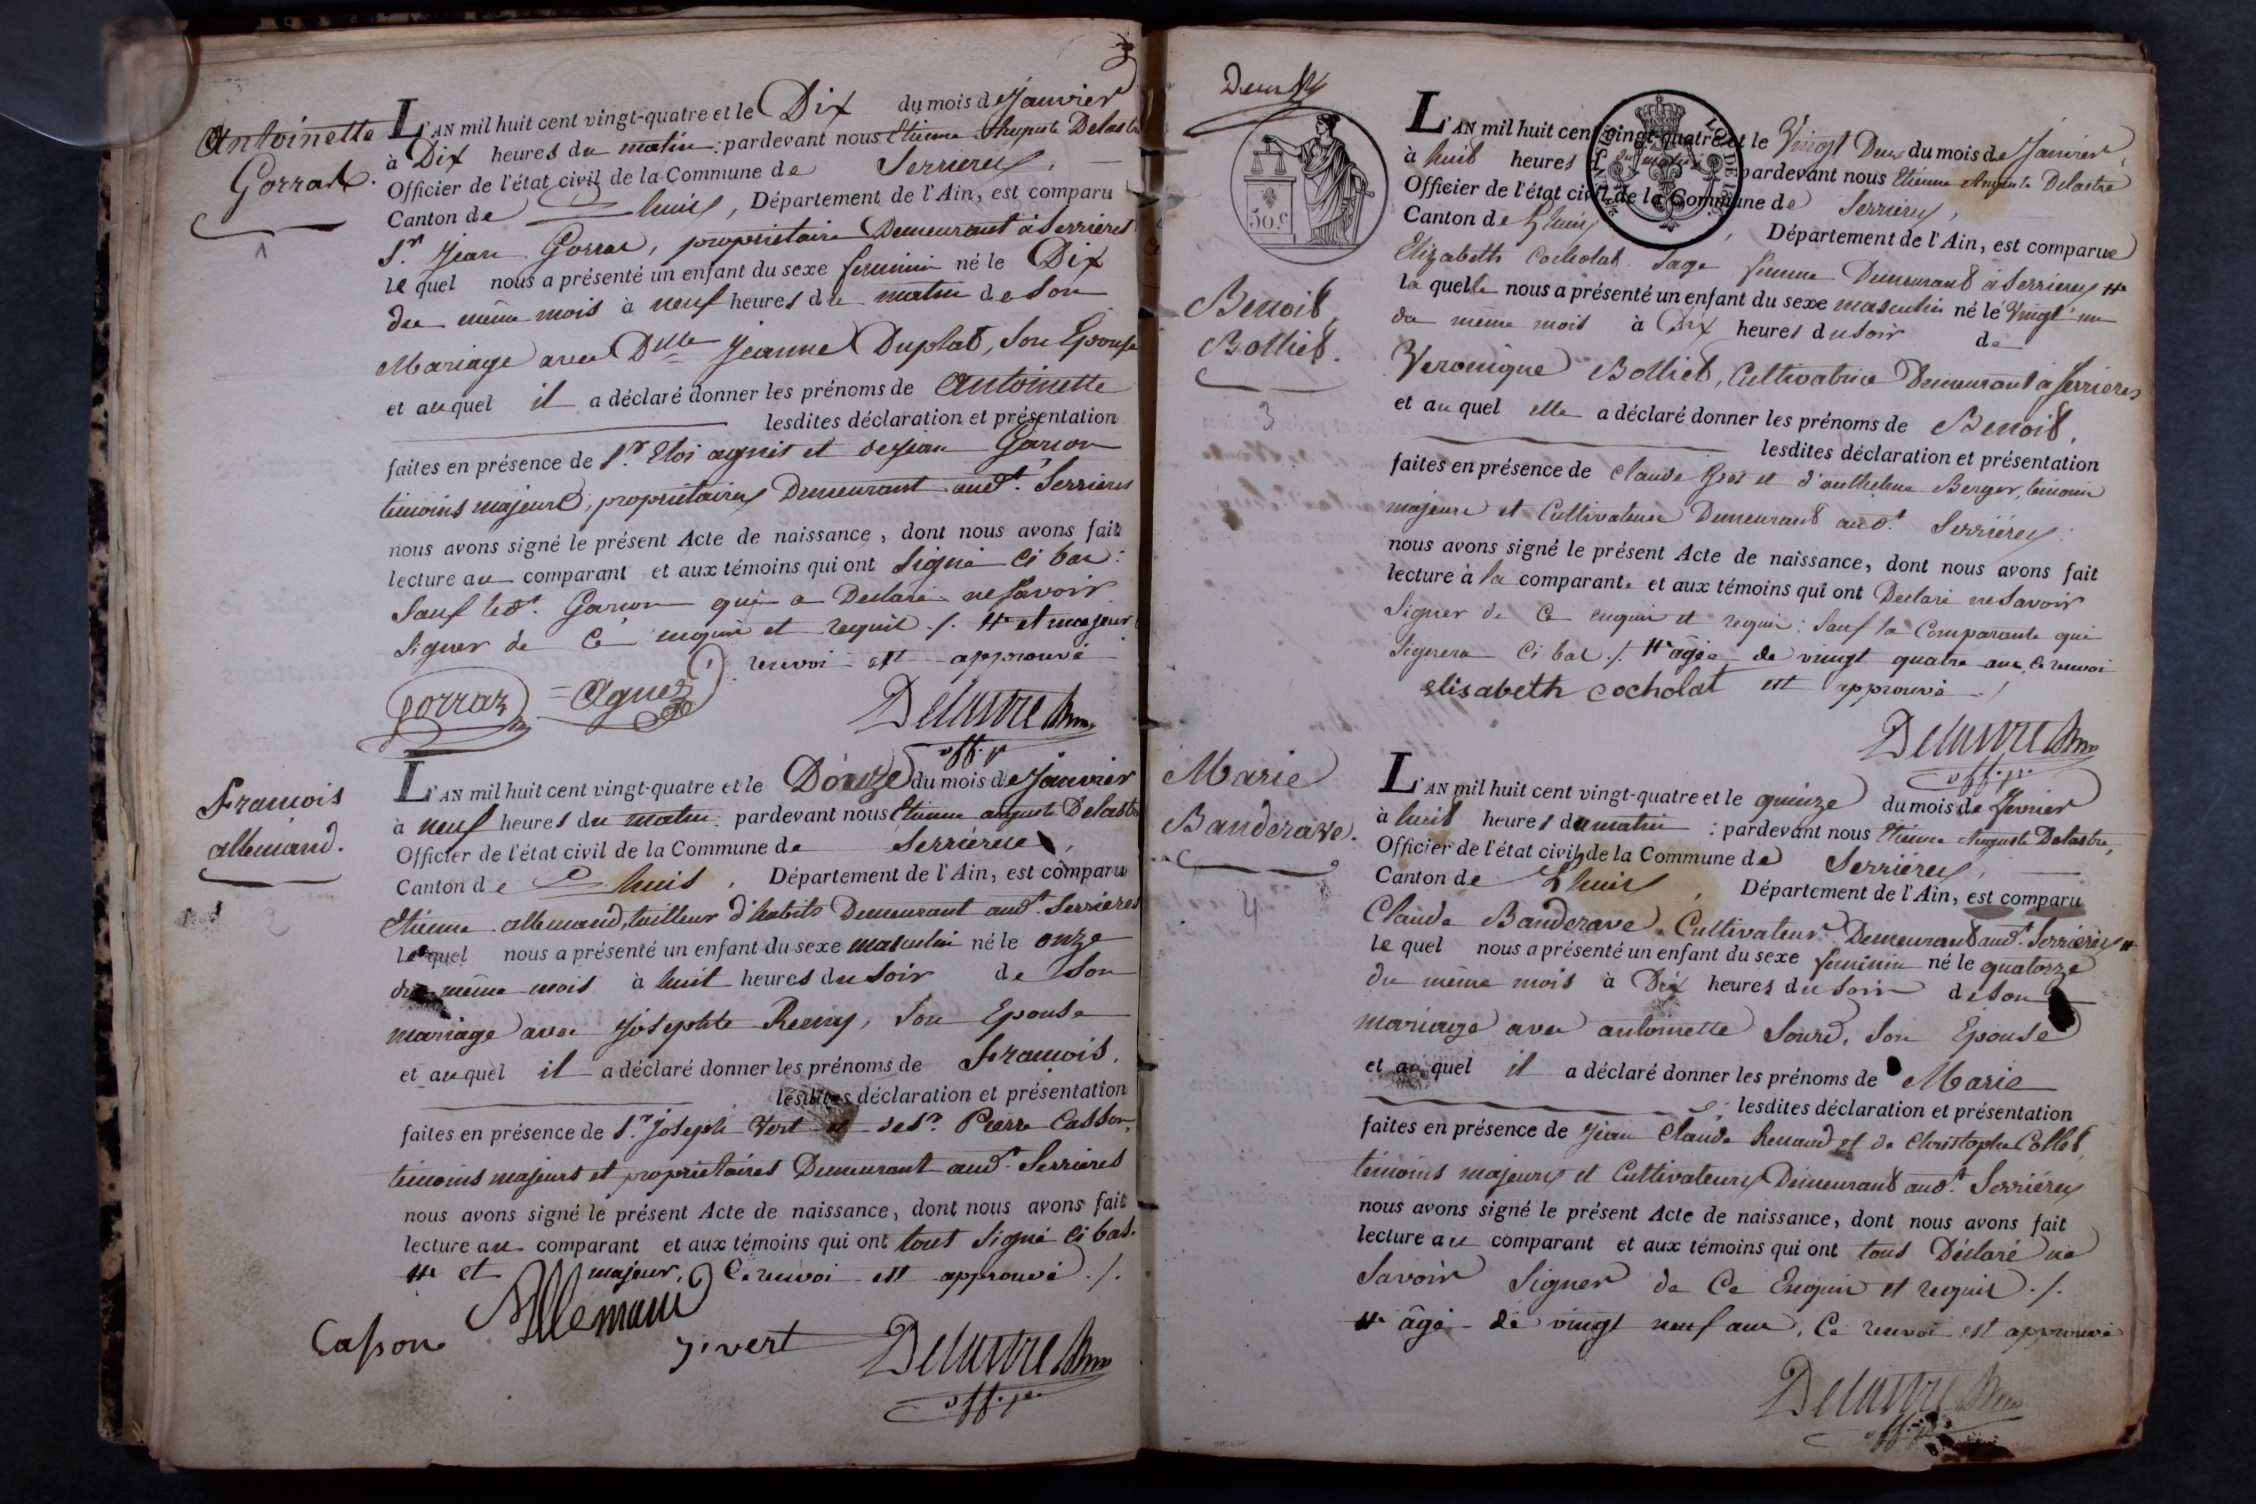 Antoinette
Gorraz.
1
L'AN mil huit cent vingt-quatre et le Dix du mois de Janvier
à Dix heures du matin : pardevant nous Etienne Auguste Delastre
Officier de l'état civil de la Commune de Serrieres,
Canton de Lhuis, Département de l'Ain, est comparu
Sr. Jean Gorraz, propriétaire Demeurant à Serrieres
le quel nous a présenté un enfant du sexe feminin né le Dix
du même mois à neuf heures du matin de Son
Mariage avec Dlle Jeanne Duplat, Son Epouse
et auquel il a déclaré donner les prénoms de Antoinette
lesdites déclaration et présentation
faites en présence de Sr. Eloi agniet et de Jean
témoins majeurs, propriétaires Demeurant audt. Serrieres
nous avons signé le présent Acte de naissance, dont nous avons fait
lecture au comparant et aux témoins qui ont Signé Ci bas :
Sauf ledt. qui a Declaré ne Savoir
Signer de Ce enquis et requis ./. et majeur
renvoi est approuvé
gorraz
Delastre
off. pr
François
allemand.
L'AN mil huit cent vingt-quatre et le Douze du mois de Janvier
à neuf heures du matin : pardevant nous Etienne auguste Delastre
Officier de l'état civil de la Commune de Serriéres,
Canton de Lhuis, Département de l'Ain, est comparu
Etienne allemand, tailleur d'habits Demeurant audt. Serrieres
Lequel nous a présenté un enfant du sexe masculin né le onze
du même mois à huit heures du Soir de Son
mariage avec Josephte Remy, Son Epouse
et auquel il a déclaré donner les prénoms de François,
lesdites déclaration et présentation
faites en présence de Sr. Joseph Vert et de Sr. Pierre Casson,
témoins majeurs et proprietaires Demeurant audt. Serrieres
nous avons signé le présent Acte de naissance, dont nous avons fait
lecture au comparant et aux témoins qui ont tous Signé Ci bas.
et majeur, Ce renvoi est approuvé ./.
Casson Allemand J. vert Delastre
off. pr
50.c
L'AN mil huit cent vingt-quatre et le Vingt Deux du mois de Janvier,
à huit heures du matin pardevant nous Etienne Auguste Delastre
Officier de l'état civil de la Commune de Serriéres,
Canton de Lhuis, Département de l'Ain, est comparue
Elizabeth Cocholat Sage femme Demeurant à Serrieres
la quelle nous a présenté un enfant du sexe masculin né le Vingt un
du même mois à Dix heures du soir de
Benoit,
Bolliet.
3
Veronique Bolliet, Cultivatrice Demeurant à Serrieres
et au quel elle a déclaré donner les prénoms de Benoit,
lesdites déclaration et présentation
faites en présence de Claude et d'anthelme Berger, témoins
majeurs et Cultivateurs Demeurant audt. Serriéres :
nous avons signé le présent Acte de naissance, dont nous avons fait
lecture à la comparante et aux témoins qui ont Declaré ne Savoir
Signer de Ce enquis et requis : Sauf la Comparante qui
Signera Ci bas ./. âgée de vingt quatre ans, Ce renvoi
elisabeth cocholat est approuvé ./
Delastre
off. pr
Marie
Banderave.
4
L'AN mil huit cent vingt-quatre et le quinze du mois de fevrier
à huit heures du matin : pardevant nous Etienne Auguste Delastre,
Officier de l'état civil de la Commune de Serriéres,
Canton de Lhuis, Département de l'Ain, est comparu
Claude Banderave, Cultivateur Demeurant audt. Serrieres
le quel nous a présenté un enfant du sexe feminin né le quatorze
du même mois à Dix heures du soir de Son
mariage avec antoinette Sourd, Son Epouse
et au quel il a déclaré donner les prénoms de Marie
lesdites déclaration et présentation
faites en présence de Jean Claude Renaud et de Christophe Collet,
témoins majeurs et Cultivateurs Demeurant audt. Serriéres
nous avons signé le présent Acte de naissance, dont nous avons fait
lecture au comparant et aux témoins qui ont tous Déclaré ne
Savoir Signer de Ce Enquis et requis ./.
âgé de vingt neuf ans, Ce renvoi est approuvé
Delastre
off. pr